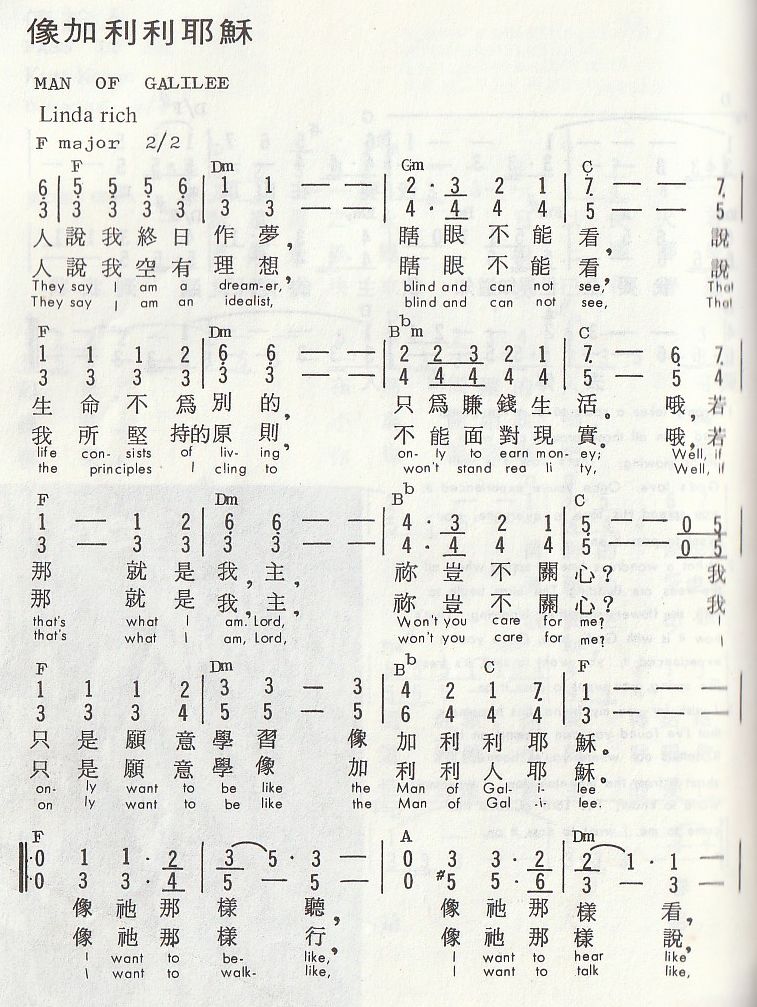 像加利利耶穌
MAN OF GALILEE
Linda rich
F major 2/2
F Dm Gm C
6̣ 5̣ 5̣ 5̣ 6̣ 1 1 — — 2 · 3 2 1 7̣ — — 7̣
3 3 3 3 3 3 3 — — 4 · 4 4 4 5 — — 5
人說我終日作夢，瞎眼不能看，說
人說我空有理想，瞎眼不能看，說
They say I am a dream-er, blind and can not see, That
They say I am an idealist, blind and can not see, That
F Dm Bbm C
1 1 1 2 6̣ 6̣ — — 2 2 3 2 1 7̣ — 6̣ 7̣
3 3 3 3 3 3 — — 4 4 4 4 4 5 — 5 4
生命不為別的，只為賺錢生活。哦，若
我所堅持的原則，不能面對現實。哦，若
life con- sists of liv- ing on- ly to earn mon- ey; Well, if
the principles I cling to won't stand rea li ty, Well, if
F Dm Bb C
1 — 1 2 6̣ 6̣ — — 4 · 3 2 1 5̣ — — 0 5
3 — 3 3 3 3 — — 4 · 4 4 4 5 — — 0 5
那就是我，主，祢豈不關心？我
那就是我，主，祢豈不關心？我
that's what I am. Lord, Won't you care for me? I
that's what I am, Lord, won't you care for me? I
F Dm Bb C F
1 1 1 2 3 3 — 3 4 2 1 7̣ 1 — — —
3 3 3 4 5 5 — 5 6 4 4 4 3 — — —
只是願意學習像加利利耶穌。
只是願意學像加利利人耶穌。
on- ly want to be like the Man of Gal- i- lee
on ly want to be like the Man of Gal -i- lee.
F A Dm
0 1 1 · 2 3 5 · 3 — 0 3 3 · 2 2 1 · 1 —
0 3 3 · 4 5 — 5 — 0 #5 5 · 6 3 — 3 —
像祂那樣聽，像祂那樣看，
像祂那樣行，像祂那樣說，
I want to be- like, I want to hear like
I want to walk- like, I want to talk like,